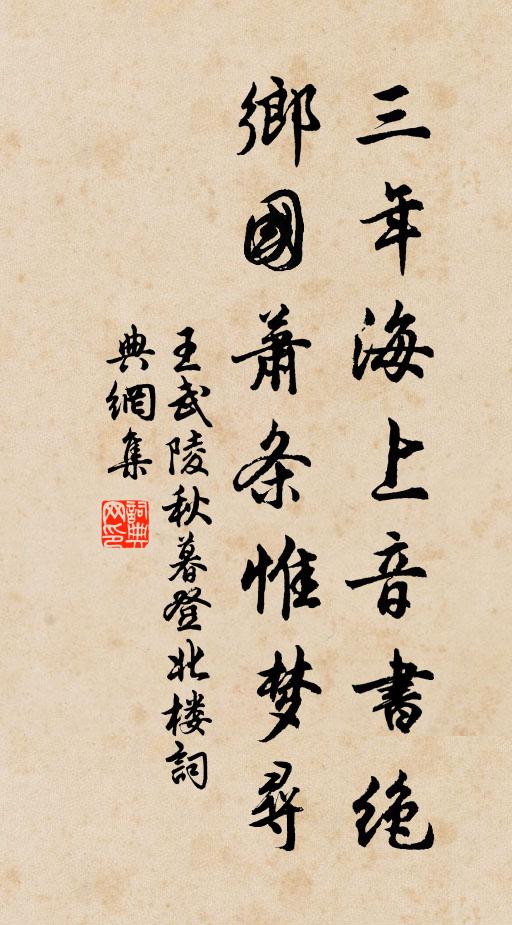 三年海上音書绝
鄉國萧条惟梦尋
王武陵秋暮登北楼詞
典網集
詞典网印